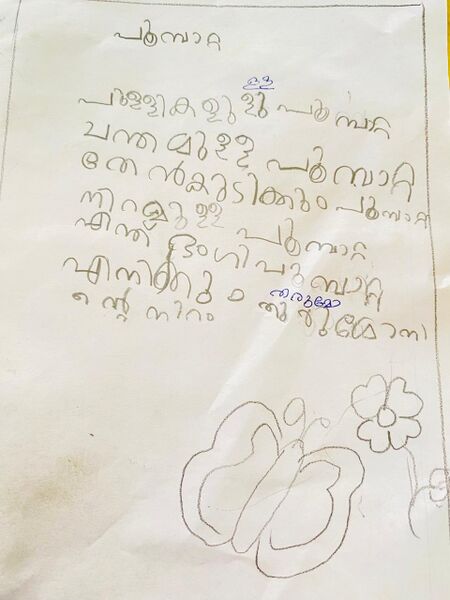 പൂമ്പാറ്റ
ള്ള
പുള്ളികളുള്ളു പൂമ്പാറ്റ
ചന്തമുള്ള പൂമ്പാറ്റ
തേൻകുടിക്കും പൂമ്പാറ്റ
നിറമുള്ള പൂമ്പാറ്റ
എന്ത് ഭംഗി പൂമ്പാറ്റ
എനിക്കും
തരുമോ
ന്റെ നിറം